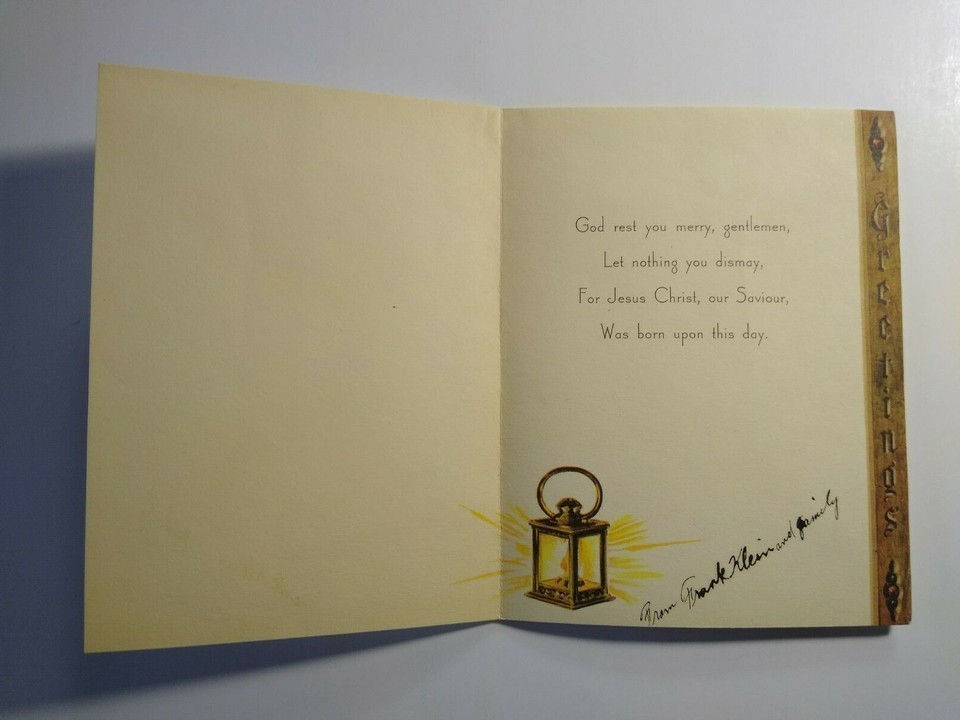 God rest you merry, gentlemen,
Let nothing you dismay,
For Jesus Christ, our Saviour,
Was born upon this day.
From Frank Klein and family
Greetings